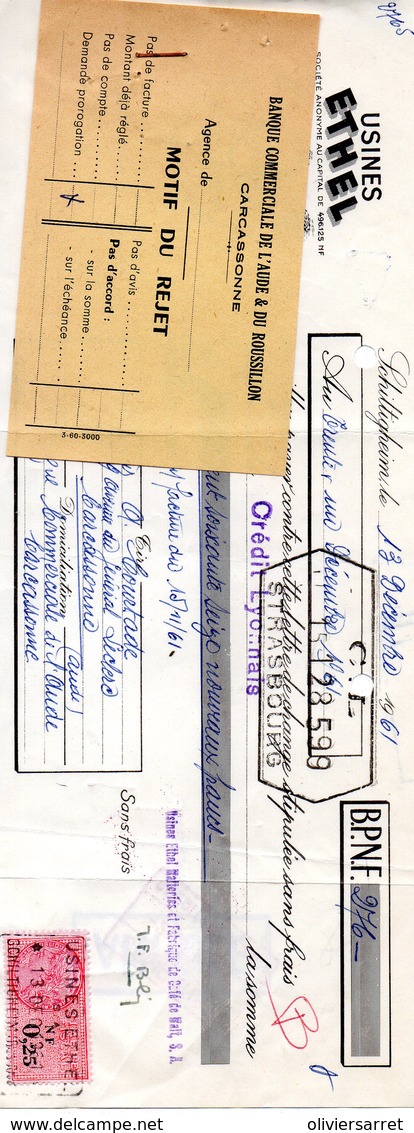 USINES
ETHEL
SOCIÉTÉ ANONYME AU CAPITAL DE 496.125 NF
Schiltigheim, le 13 Décembre 1961
B.P.NF. 276 —
Au trente un Décembre 1961
C.L.
15128599
STRASBOURG
payer contre cette lettre de change stipulée sans frais
la somme
Crédit Lyonnais
soixante seize nouveaux francs —
facture du 15/11/61.
Tiré
Courtade
Carcassonne
(Aude)
Domiciliation
Commerciale de l'Aude
Carcassonne
Sans frais
Usines Ethel Malteries et Fabrique de Café de Malt, S. A.
USINES ETHEL
13
NF
0,25
BANQUE COMMERCIALE DE L'AUDE & DU ROUSSILLON
CARCASSONNE
Agence de
MOTIF DU REJET
Pas de facture
Montant déjà réglé
Pas de compte
Demande prorogation
Pas d'avis
Pas d'accord :
- sur la somme
- sur l'échéance
3-60-3000
© oliviersarret